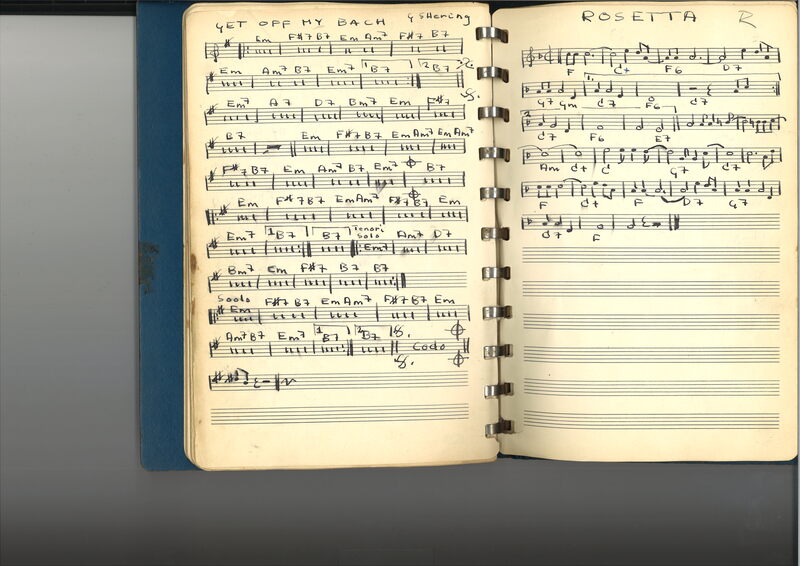 GET OFF MY BACH G SHering
Em F#7 B7 Em Am7 F#7 B7
Em Am7 B7 Em7 1 B7 2 B7
Em7 A7 D7 Bm7 Em F#7
B7 Em F#7 B7 Em Am7 Em Am7
F#7 B7 Em Am7 B7 Em7 B7
Em F#7 B7 Em Am7 F#7 B7 Em
Em7 1 B7 B7 Tenori Solo Em7 Am7 D7
Bm7 Em F#7 B7 B7
Soolo Em F#7 B7 Em Am7 F#7 B7 Em
Am7 B7 Em7 1 B7 2 B7 Codo
ROSETTA R
F C+ F6 D7
G7 Gm 1. C7 F6 C7
2 C7 F6 E7
Am C+ C G7 C7
F C+ F D7 G7
C7 F